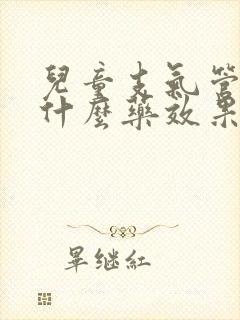 兒童支氣管
什麼藥效果
畢继紅